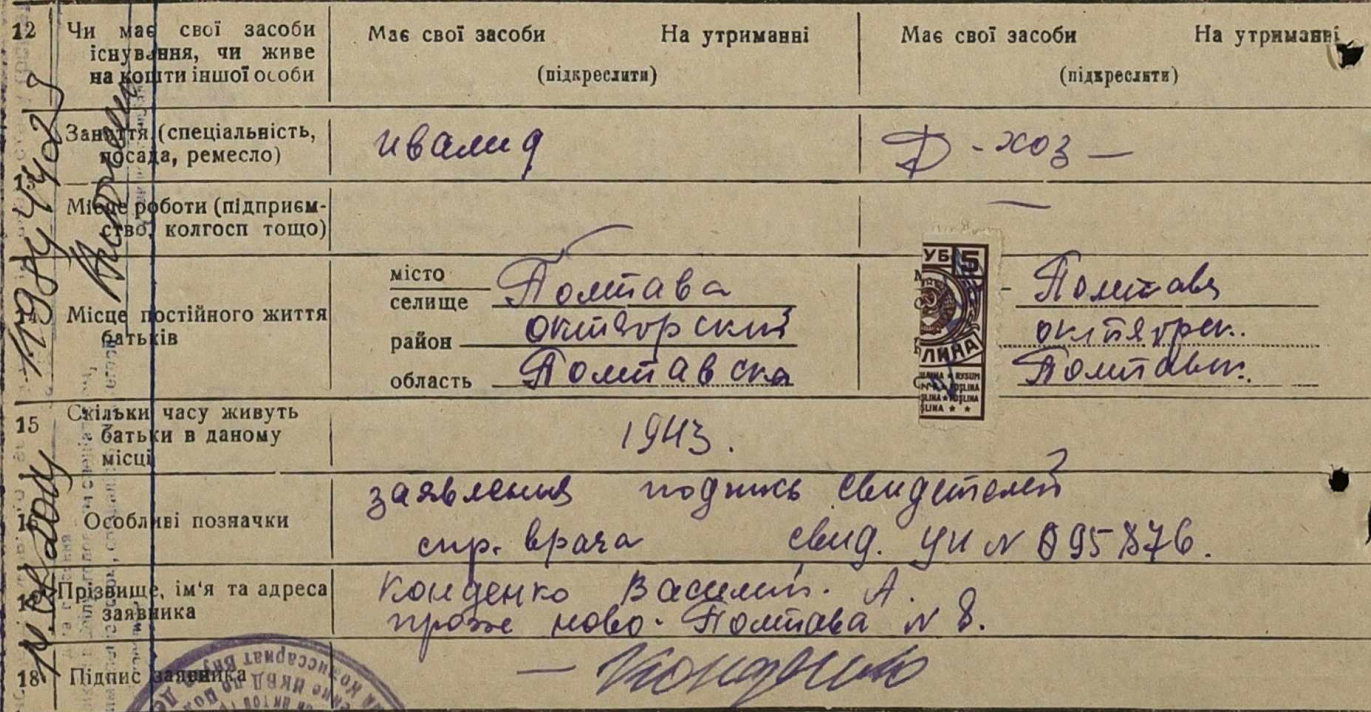 12 Чи має свої засоби
існування, чи живе
на кошти іншої особи
Має свої засоби На утриманні
(підкреслити)
Має свої засоби На утриманні
(підкреслити)
Заняття (спеціальність,
посада, ремесло)
ивалид
Д-хоз —
Місце роботи (підприєм-
ство, колгосп тощо)
—
Місце постійного життя
батьків
місто
селище Полтава
район октяорский
область Полтавска
- Полтава
октяорск.
Полтавск.
УБ 5
ЛИНА
15 Скільки часу живуть
батьки в даному
місці
1943.
Особливі позначки
заявления подпись свидетелей
спр. врача свид. УИ № 095876.
Прізвище, ім'я та адреса
заявника
Конденко Василий. А.
ново-Полтава № 8.
18 Підпис заявника
— Конденко